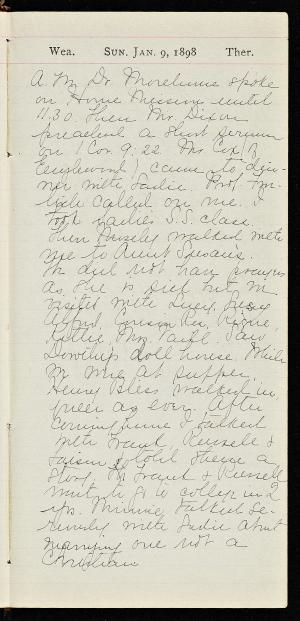 Wea. SUN. JAN. 9, 1898 Ther.
A.M. Dr. Morehouse spoke
on Home Missions until
11.30. Then Mr. Dixon
preached a short sermon
on 1 Cor. 9:22. Mr Cox of
Englewood came to din-
ner with Sadie. Prof.
called on me. I
took Sadie's S.S. class.
Then walked with
me to Aunt Susan's.
did not have
as she is sick but
visited with Lucy,
Alfred, Cousin
Saw
Dorothy's doll house. While
we were at supper
Henry Bless walked in,
queer as ever. After
coming home I talked
with Grant, Russell &
told them a
story. Grant & Russell
want to go to college in 2
yrs. Minnie talked se-
riously with Sadie about
marrying one not a
Christian